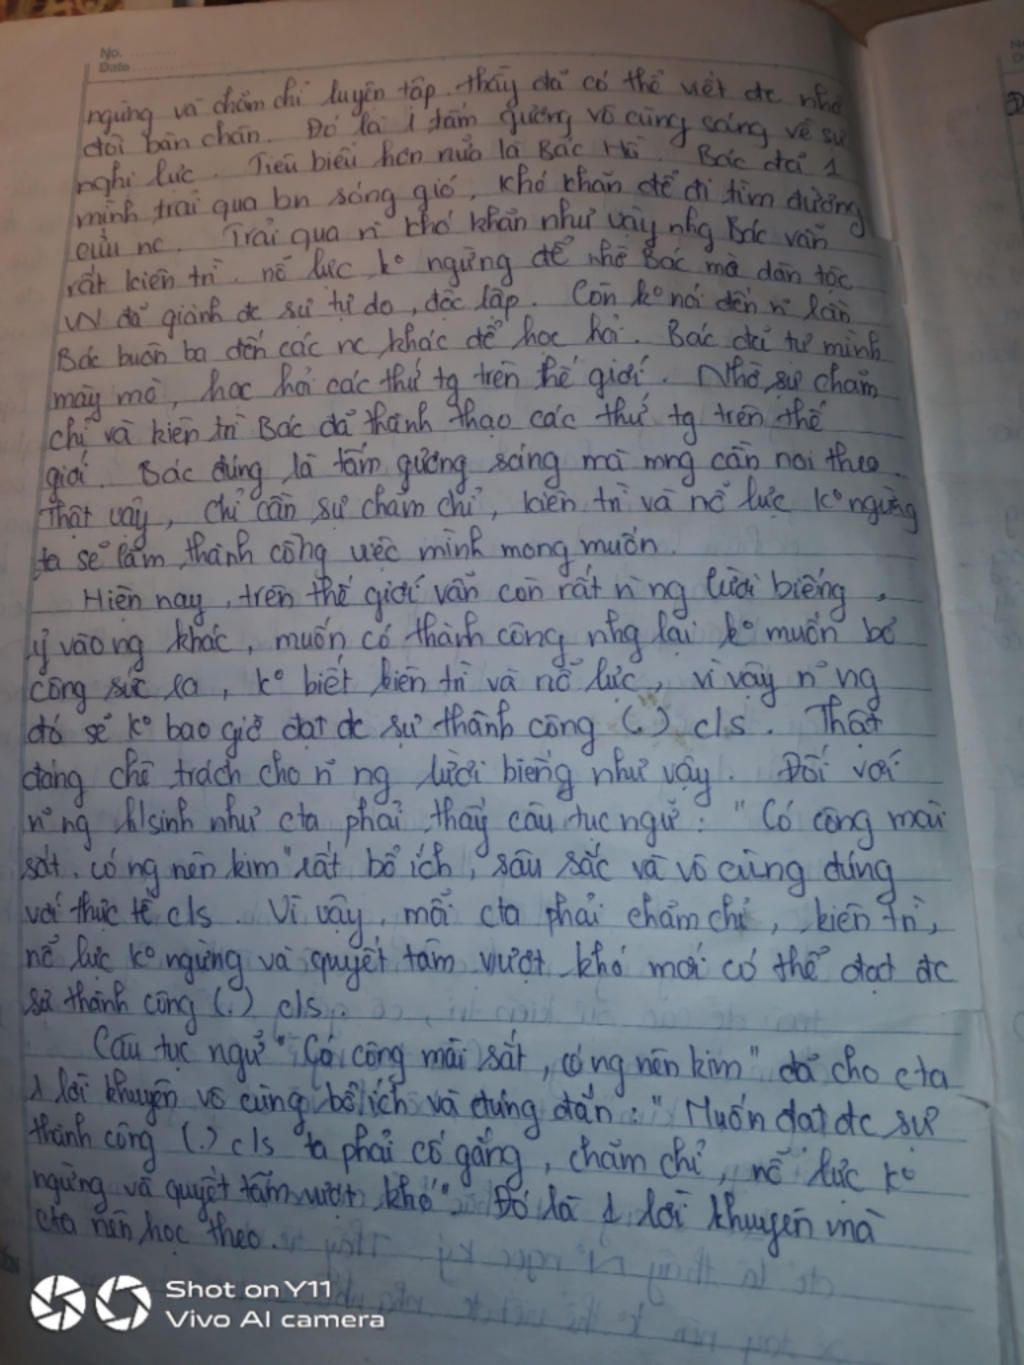 No.
Date
ngừng và chăm chỉ luyện tập thầy đã có thể viết đc nhờ
đôi bàn chân. Đó là 1 tấm gương vô cùng sáng về sự
nghị lực. Tiêu biểu hơn nữa là Bác Hồ. Bác đã 1
mình trải qua bn sóng gió, khó khăn để đi tìm đường
cứu nc. Trải qua n~ khó khăn như vậy nhg Bác vẫn
rất kiên trì nỗ lực ko ngừng để nhờ Bác mà dân tộc
VN đã giành đc sự tự do, độc lập. Còn ko nói đến n~ lần
Bác buôn ba đến các nc khác để học hỏi. Bác đã tự mình
mày mò, học hỏi các thứ tg trên thế giới. Nhờ sự chăm
chỉ và kiên trì Bác đã thành thạo các thứ tg trên thế
giới. Bác đúng là tấm gương sáng mà mng cần noi theo.
Thật vậy, chỉ cần sự chăm chỉ, kiên trì và nỗ lực ko ngừng
ta sẽ làm thành công việc mình mong muốn.
Hiện nay, trên thế giới vẫn còn rất n~ ng lười biếng,
ỷ vào ng khác, muốn có thành công nhg lại ko muốn bỏ
công sức ra, ko biết kiên trì và nỗ lực, vì vậy n~ ng
đó sẽ ko bao giờ đạt đc sự thành công (.) c/s. Thật
đáng chê trách cho n~ ng lười biếng như vậy. Đối với
n~ ng h/sinh như cta phải thấy câu tục ngữ: "Có công mài
sắt, có ng nên kim" rất bổ ích, sâu sắc và vô cùng đúng
với thực tế c/s. Vì vậy, mỗi cta phải chăm chỉ, kiên trì,
nỗ lực ko ngừng và quyết tâm vượt khó mới có thể đạt đc
sự thành công (.) c/s.
Câu tục ngữ "Có công mài sắt, có ng nên kim" đã cho cta
1 lời khuyên vô cùng bổ ích và đúng đắn: "Muốn đạt đc sự
thành công (.) c/s ta phải cố gắng, chăm chỉ, nỗ lực ko
ngừng và quyết tâm vượt khó". Đó là 1 lời khuyên mà
cta nên học theo.
Shot on Y11
Vivo AI camera